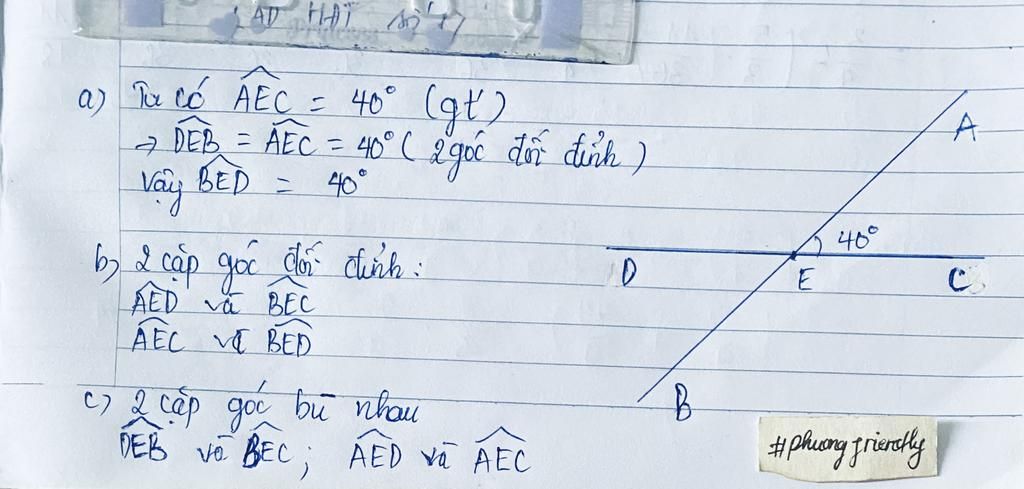 AD HAI
a) Ta có AEC = 40° (gt)
→ DEB = AEC = 40° ( 2 góc đối đỉnh )
vậy BED = 40°
b) 2 cặp góc đối đỉnh :
AED và BEC
AEC và BED
c) 2 cặp góc bù nhau
DEB và BEC ; AED và AEC
A
40°
D
E
C
B
#phuong friendly